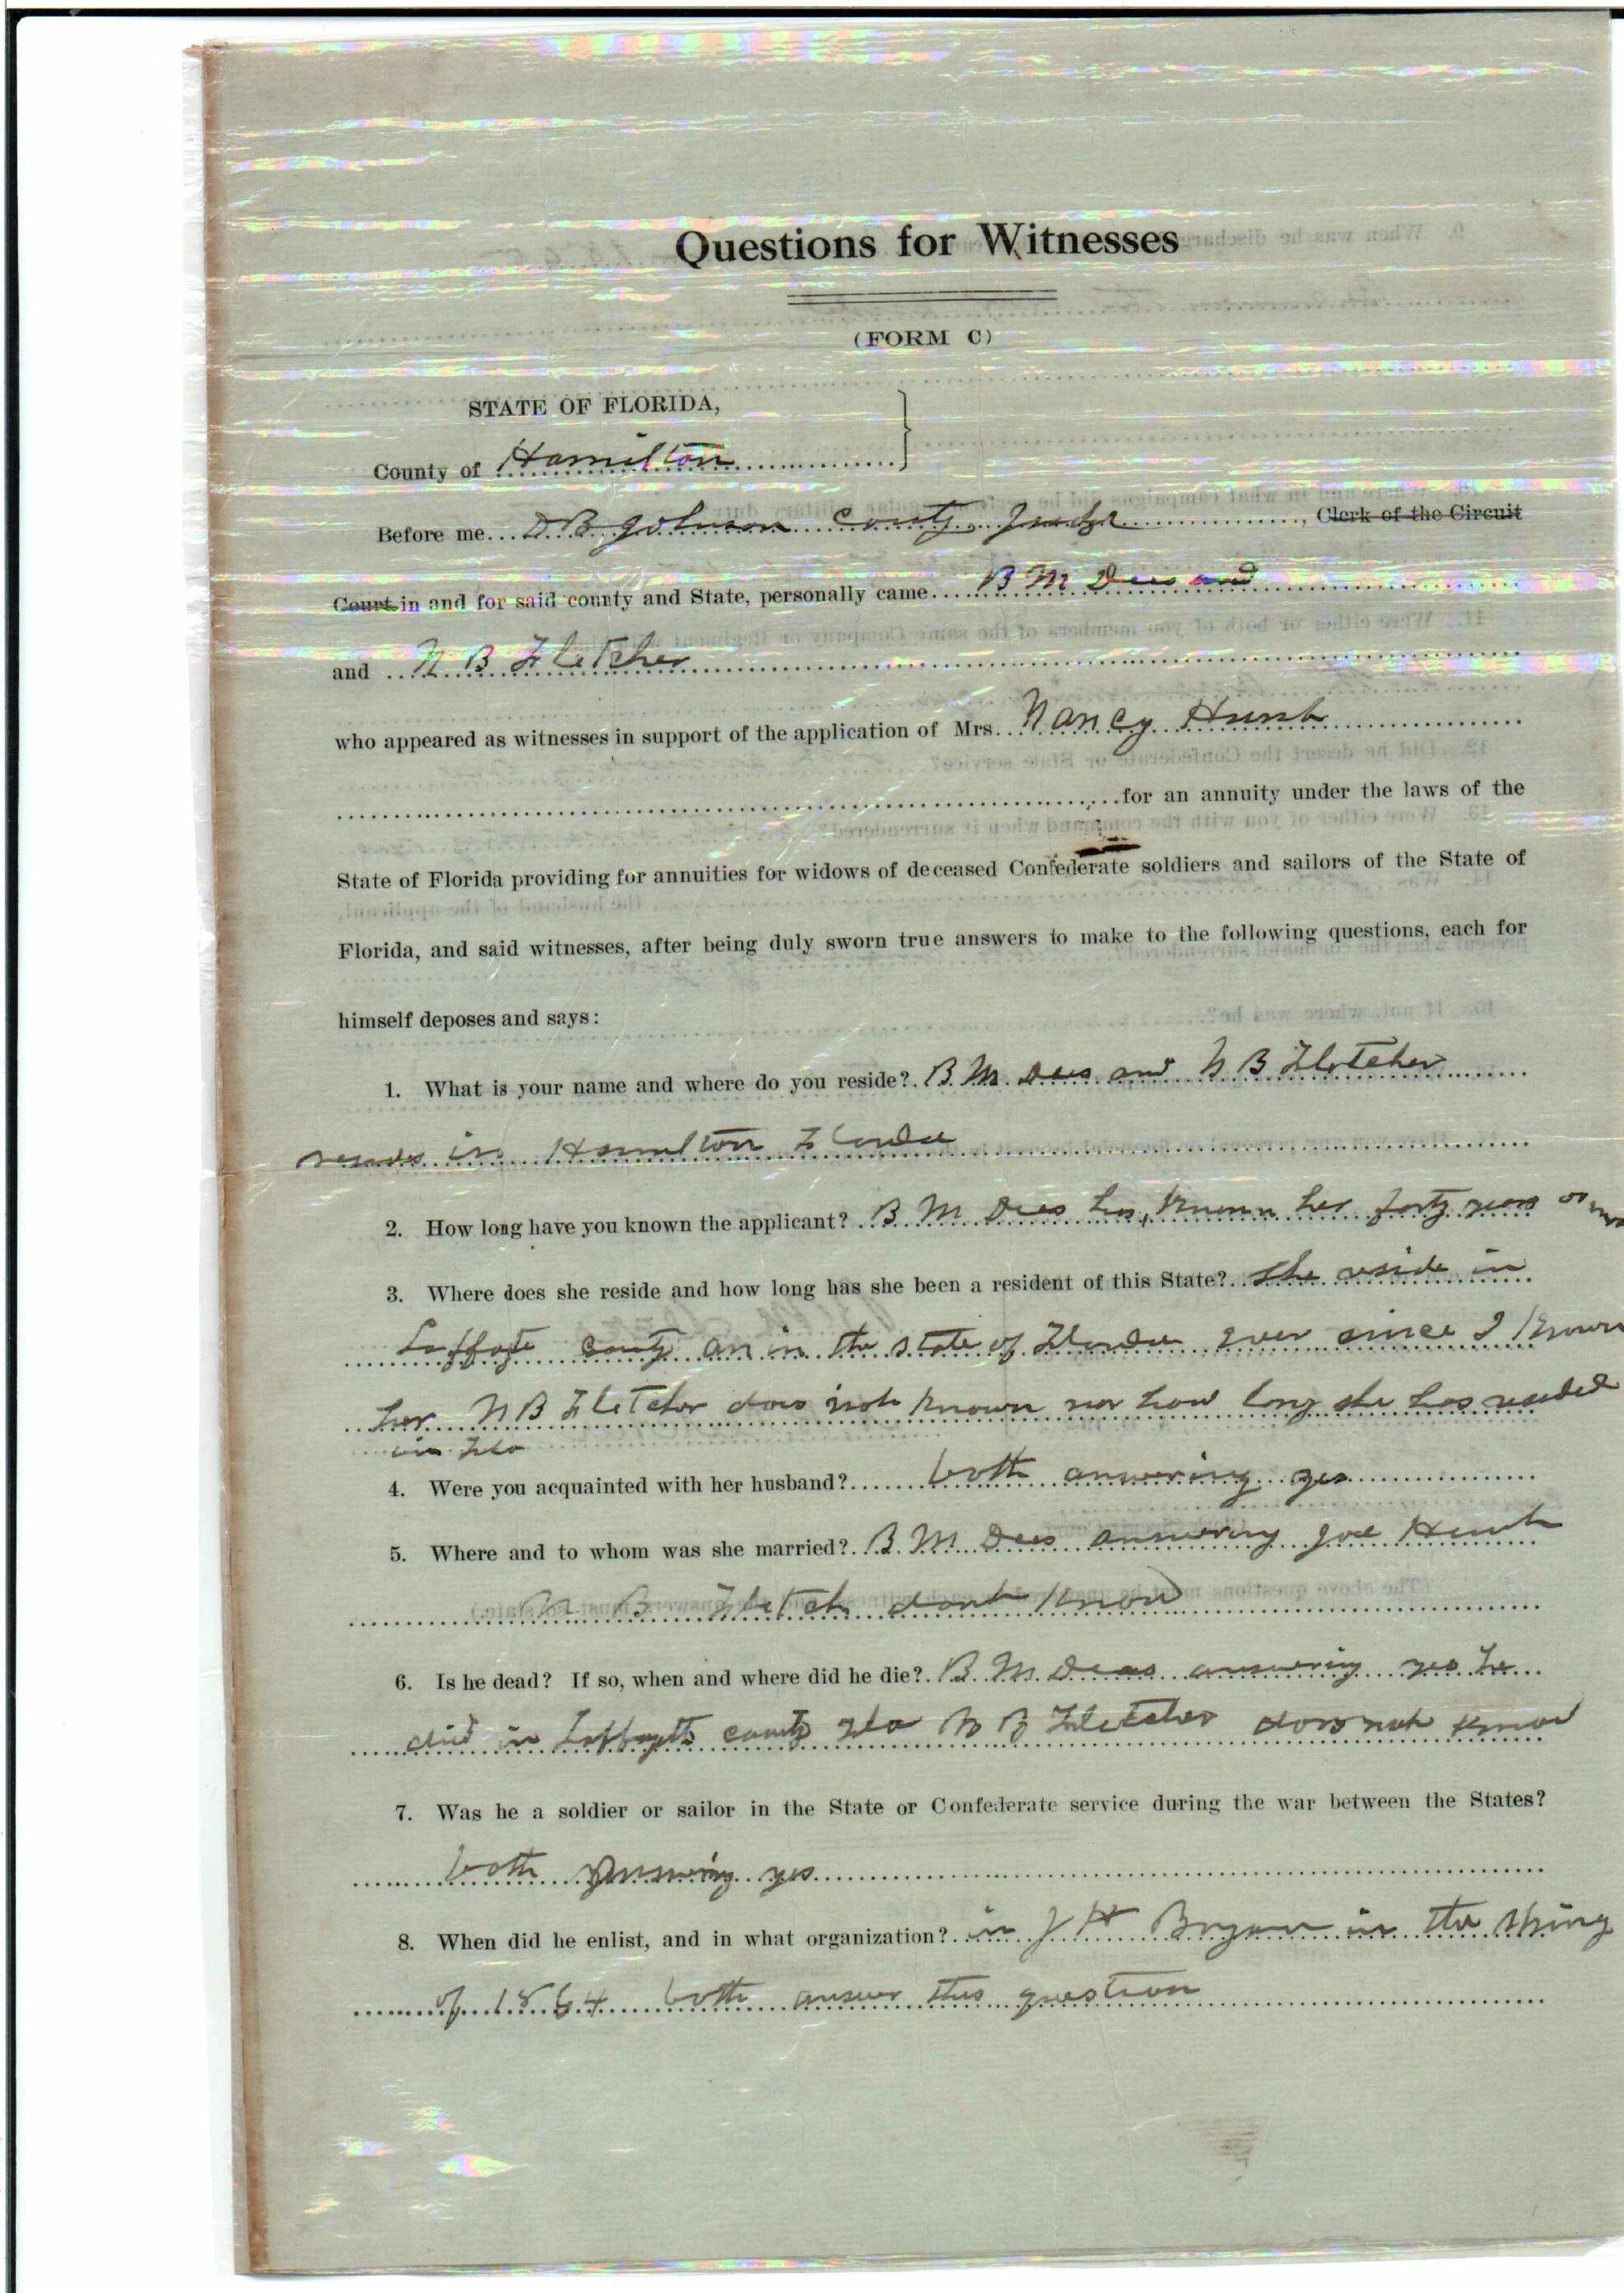 Questions for Witnesses
(FORM C)
STATE OF FLORIDA,
County of Hamilton
Before me D B Johnson County Judge, Clerk of the Circuit
Court in and for said county and State, personally came B M Dees and
and N B Fletcher
who appeared as witnesses in support of the application of Mrs. Nancy Hunt
for an annuity under the laws of the
State of Florida providing for annuities for widows of deceased Confederate soldiers and sailors of the State of
Florida, and said witnesses, after being duly sworn true answers to make to the following questions, each for
himself deposes and says:
1. What is your name and where do you reside? B M Dees and N B Fletcher
resides in Hamilton Florida
2. How long have you known the applicant? B M Dees has known her forty years or
3. Where does she reside and how long has she been a resident of this State? She reside in
Laffayte County an in the state of Florida ever since I known
her N B Fletcher does not known nor how long she has resided
in Fla
4. Were you acquainted with her husband? both answering yes
5. Where and to whom was she married? B M Dees answering Joe Hunt
N B Fletch dont know
6. Is he dead? If so, when and where did he die? B M Dees answering yes he
died in Laffayte county Fla N B Fletcher does not know
7. Was he a soldier or sailor in the State or Confederate service during the war between the States?
both answering yes
8. When did he enlist, and in what organization? in J H Bryan in the Spring
of 1864 both answer this question